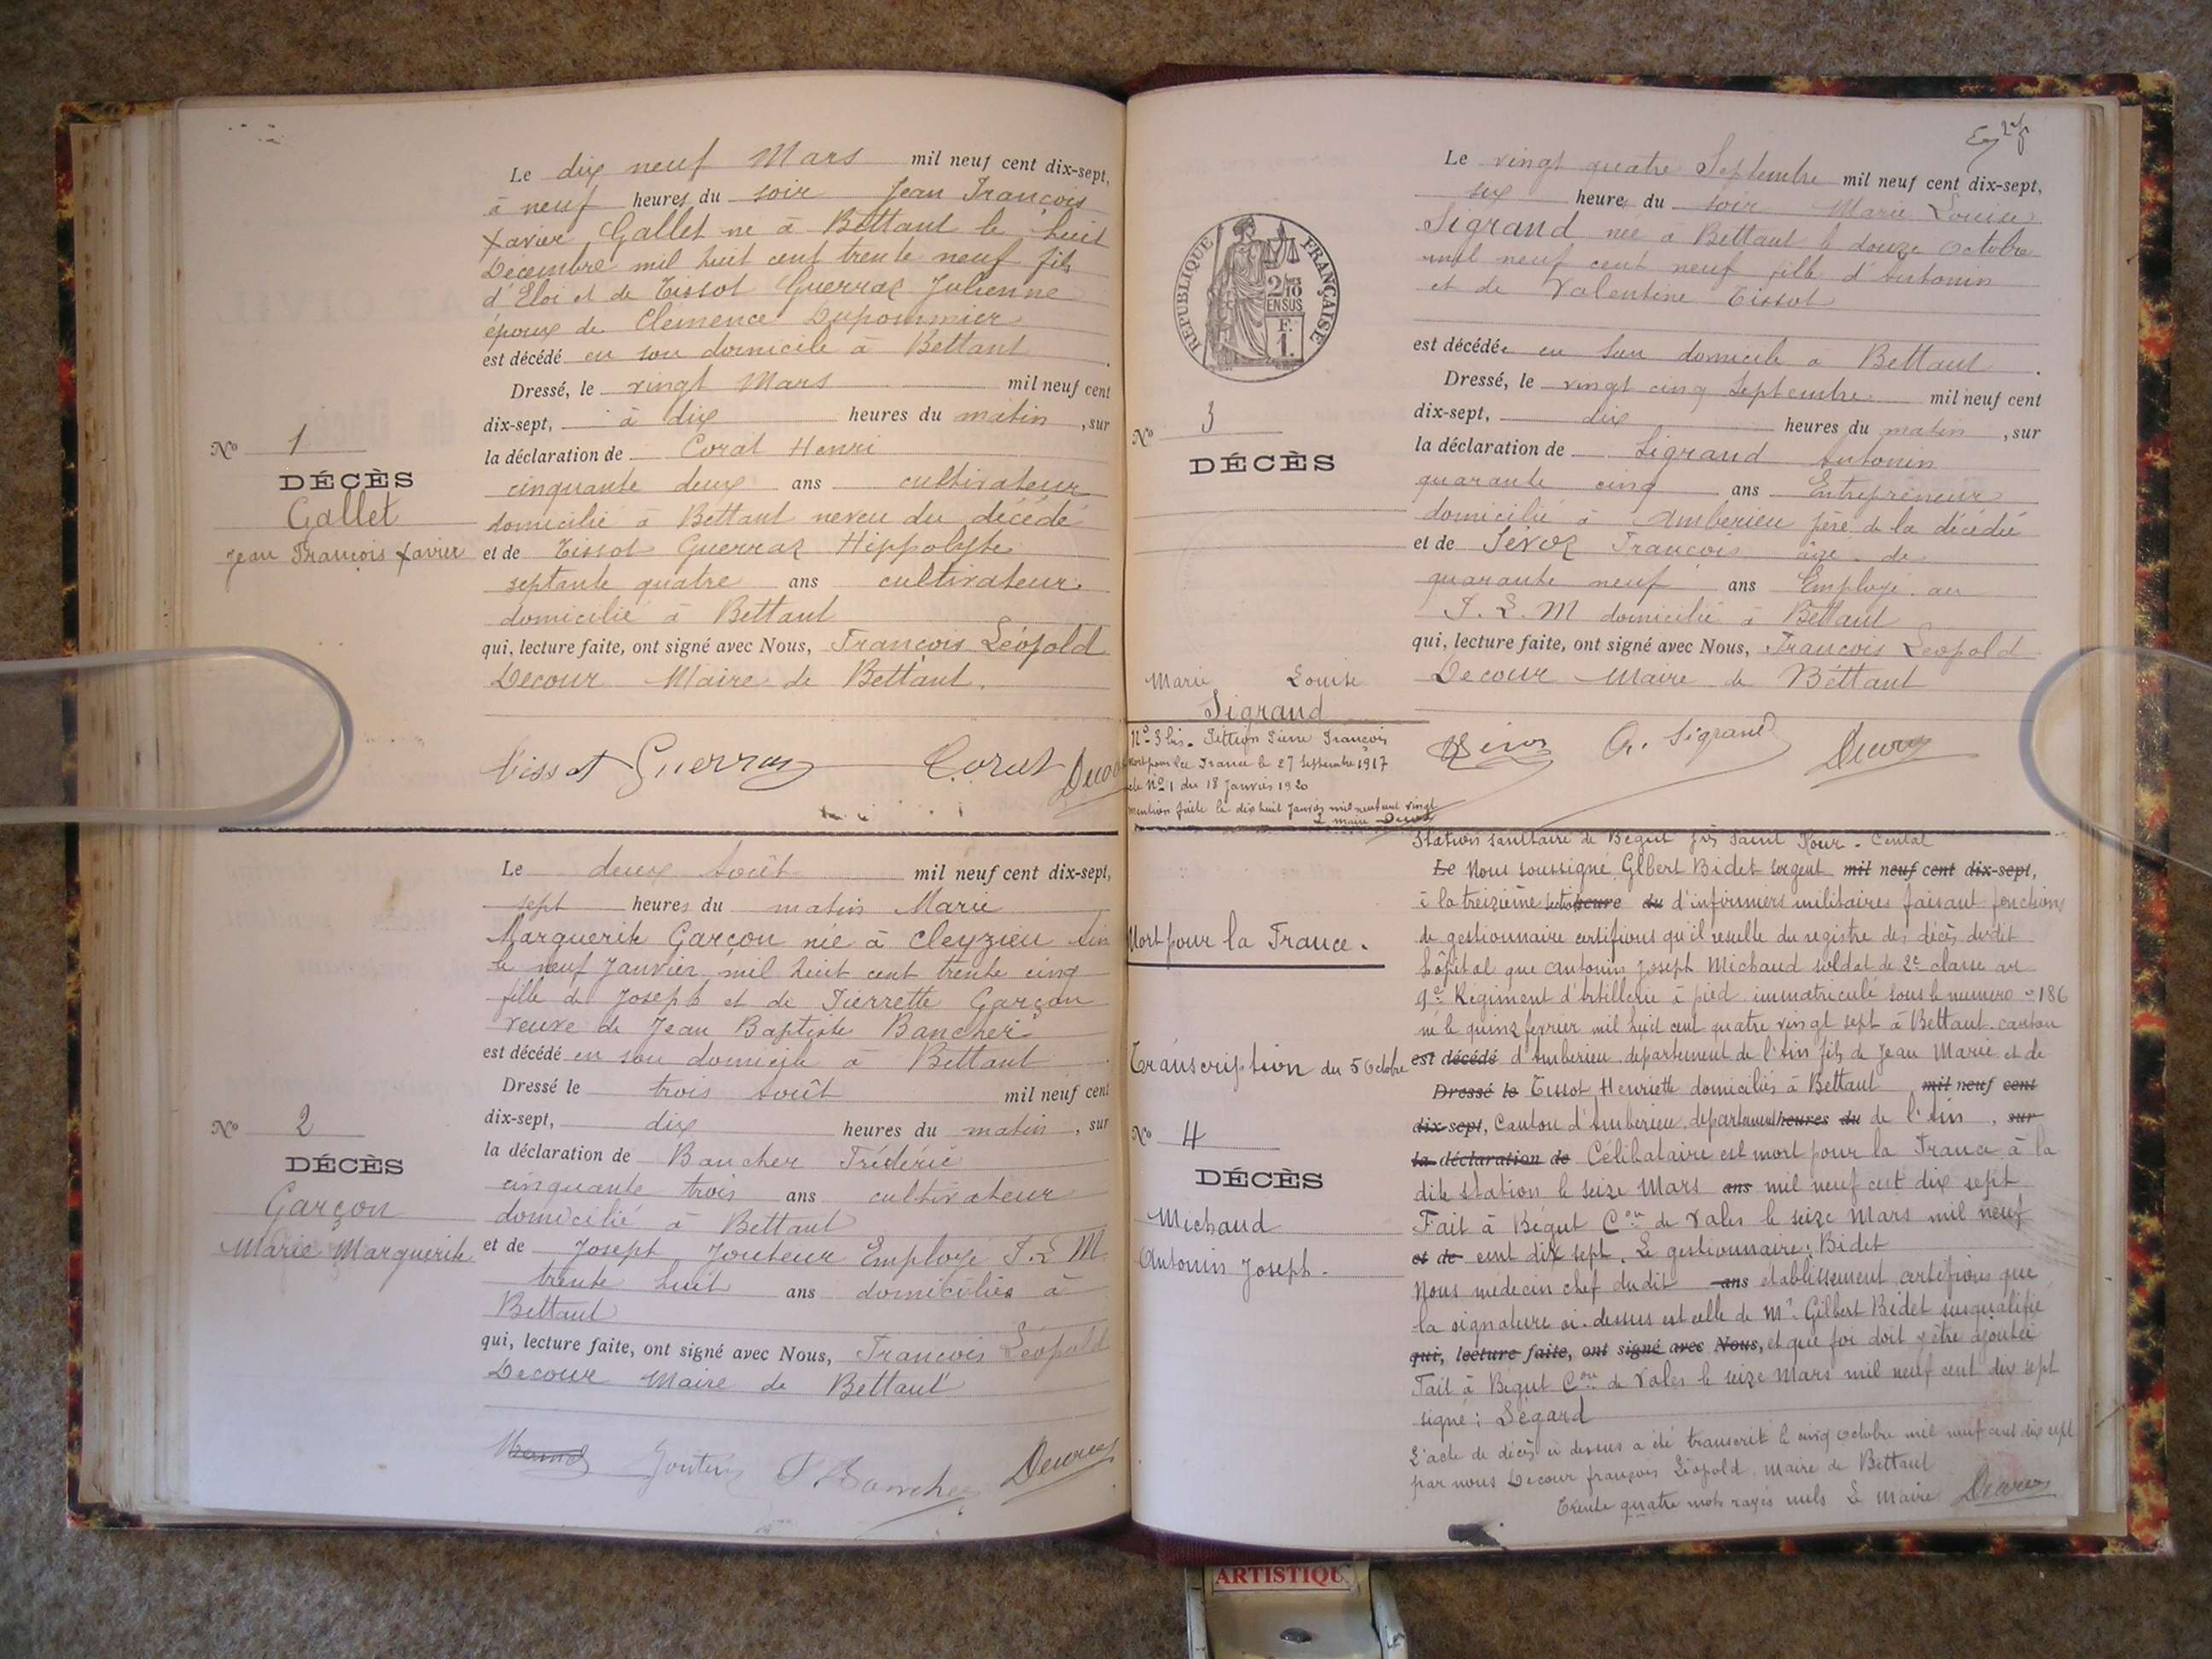 Le dix neuf Mars mil neuf cent dix-sept,
à neuf heures du soir Jean François
Xavier Gallet né à Bettant le huit
Décembre mil huit cent trente neuf fils
d'Eloi et de Tissot Guerraz Julienne
époux de Clémence Dupommier
est décédé en son domicile à Bettant.
Dressé, le vingt Mars mil neuf cent
dix-sept, à dix heures du matin, sur
la déclaration de Corat Henri
cinquante deux ans cultivateur
domicilié à Bettant neveu du décédé
et de Tissot Guerraz Hippolyte
septante quatre ans cultivateur
domicilié à Bettant
qui, lecture faite, ont signé avec Nous, François Léopold
Decour Maire de Bettant.
Tissot Guerraz Corat Decour
No 1
DÉCÈS
Gallet
Jean François Xavier
Le deux Août mil neuf cent dix-sept,
sept heures du matin Marie
Marguerite Garçon née à Cleyzieu Ain
le neuf Janvier mil huit cent trente cinq
fille de Joseph et de Pierrette Garçon
veuve de Jean Baptiste Bancher
est décédé en son domicile à Bettant
Dressé le trois Août mil neuf cent
dix-sept, dix heures du matin, sur
la déclaration de Bancher Frédéric
cinquante trois ans cultivateur
domicilié à Bettant
et de Joseph Jouteur Employé P.L.M
trente huit ans domiciliés à
Bettant
qui, lecture faite, ont signé avec Nous, François Léopold
Decour Maire de Bettant
Decour
No 2
DÉCÈS
Garçon
Marie Marguerite
Le vingt quatre Septembre mil neuf cent dix-sept,
six heures du soir Marie Louise
Sigrand née à Bettant le douze Octobre
mil neuf cent neuf fille d'Antonin
et de Valentine Tissot
est décédée en son domicile à Bettant.
Dressé, le vingt cinq Septembre mil neuf cent
dix-sept, dix heures du matin, sur
la déclaration de Sigrand Antonin
quarante cinq ans Entrepreneur
domicilié à Ambérieu père de la décédée
et de Sevoz François âgé de
quarante neuf ans Employé au
P.L.M domicilié à Bettant
qui, lecture faite, ont signé avec Nous, François Léopold
Decour Maire de Bettant
A. Sigrand Decour
RÉPUBLIQUE FRANÇAISE
2/10
EN SUS
F.
1.
No 3
DÉCÈS
Marie Louise
Sigrand
No 3 bis. Pierre François
Mort pour la France le 27 Septembre 1917
acte No 1 du 18 Janvier 1920
Mention faite le dix huit Janvier mil neuf cent vingt
Le maire Decour
Station sanitaire de Bégut près Saint Flour - Cantal
Le Nous soussigné Gilbert Bidet sergent mil neuf cent dix-sept,
à la treizième section heure du d'infirmiers militaires faisant fonctions
de gestionnaire certifions qu'il résulte du registre des décès dudit
hôpital que Antonin Joseph Michaud soldat de 2e classe au
9e Régiment d'Artillerie à pied immatriculé sous le numero 186
né le quinz fevrier mil huit cent quatre vingt sept à Bettant canton
est décédé d'Amberieu département de l'Ain fils de Jean Marie et de
Dressé le Tissot Henriette domiciliés à Bettant mil neuf cent
dix-sept, Canton d'Amberieu département heures du de l'Ain, sur
la déclaration de Célibataire est mort pour la France à la
dite station le seize Mars ans mil neuf cent dix sept
Fait à Bégut Con de Vales le seize Mars mil neuf
et de cent dix sept. Le gestionnaire: Bidet
Nous médecin chef dudit ans établissement certifions que
la signature ci-dessus est celle de Mr Gilbert Bidet susqualifié
qui, lecture faite, ont signé avec Nous, et que foi doit y être ajoutée
Fait à Bégut Con de Vales le seize Mars mil neuf cent dix sept
signé: Ségard
L'acte de décès ci dessus a été transcrit le cinq octobre mil neuf cent dix sept
par nous Decour françois Léopold, maire de Bettant
Trente quatre mots rayés nuls Le Maire Decour
Mort pour la France.
Transcription du 5 Octobre
No 4
DÉCÈS
Michaud
Antonin Joseph.
ARTISTIQU